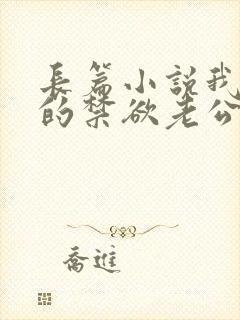 長篇小說我
的禁欲老公
喬進